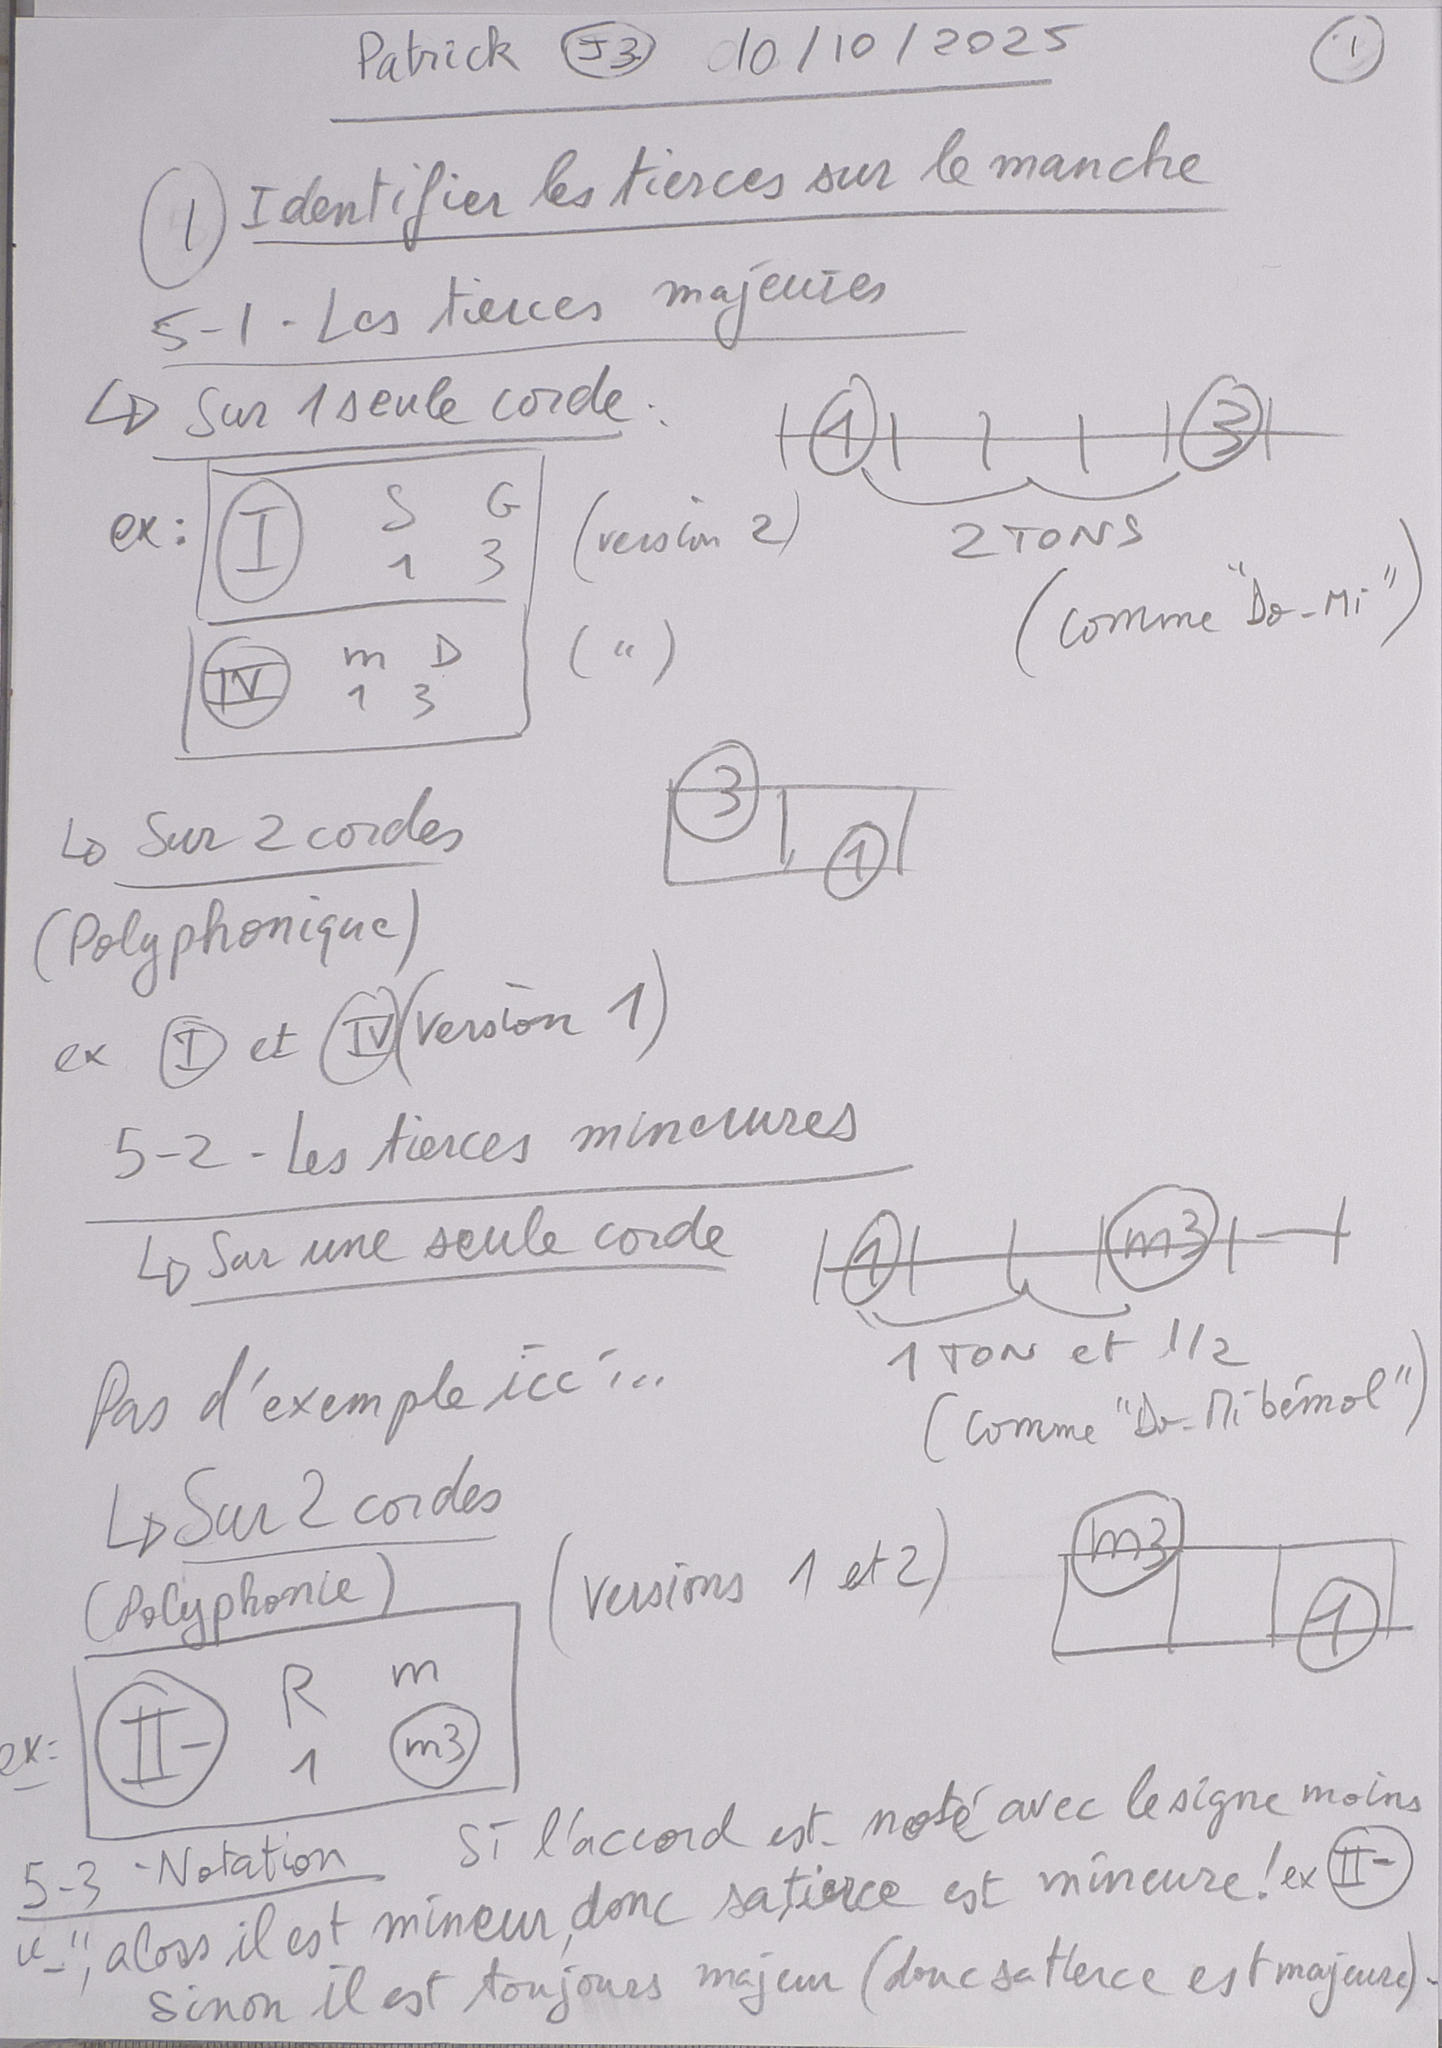 Patrick J3 10/10/2025 1
1 Identifier les tierces sur le manche
5-1 - Les tierces majeures
↳ Sur 1 seule corde :
1 3
ex: I S G (version 2) 2 TONS
1 3
(comme "Do-Mi")
IV m D (")
1 3
3
↳ Sur 2 cordes
1
(Polyphonique)
ex I et IV (version 1)
5-2 - Les tierces mineures
↳ Sur une seule corde
1 m3
1 TON et 1/2
Pas d'exemple ici...
(comme "Do-Mi bémol")
↳ Sur 2 cordes
m3
(Polyphonie) (versions 1 et 2)
1
ex: II- R m
1 m3
5-3 - Notation Si l'accord est noté avec le signe moins
"-", alors il est mineur, donc sa tierce est mineure! ex II-
sinon il est toujours majeur (donc sa tierce est majeure).